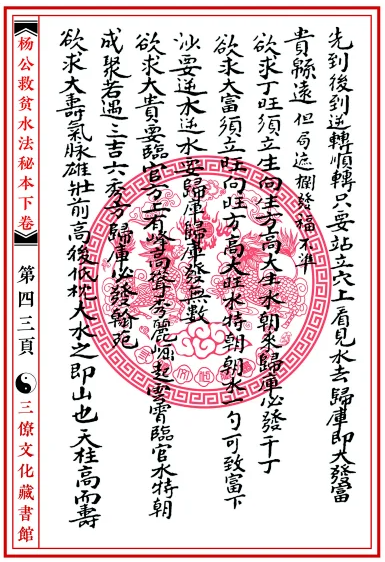 先到後到逆轉順轉只要站立穴上看見水去歸庫即大發富
貴綿遠但局遮攔發福不準
欲求丁旺須立生向生方高大生水朝來歸庫必發千丁
欲求大富須立旺向旺方高大旺水特朝朝水一勺可致富下
沙要逆水逆水要歸庫歸庫發無數
欲求大貴要臨官方上有峰高聳秀麗涌起雲霄臨官水特朝
成聚若遇三吉六秀方歸庫必發翰苑
欲求大壽氣脉雄壯前高後低枕大水之即山也天柱高而壽
杨公救贫水法秘本下卷
第四三頁
三僚文化藏書館